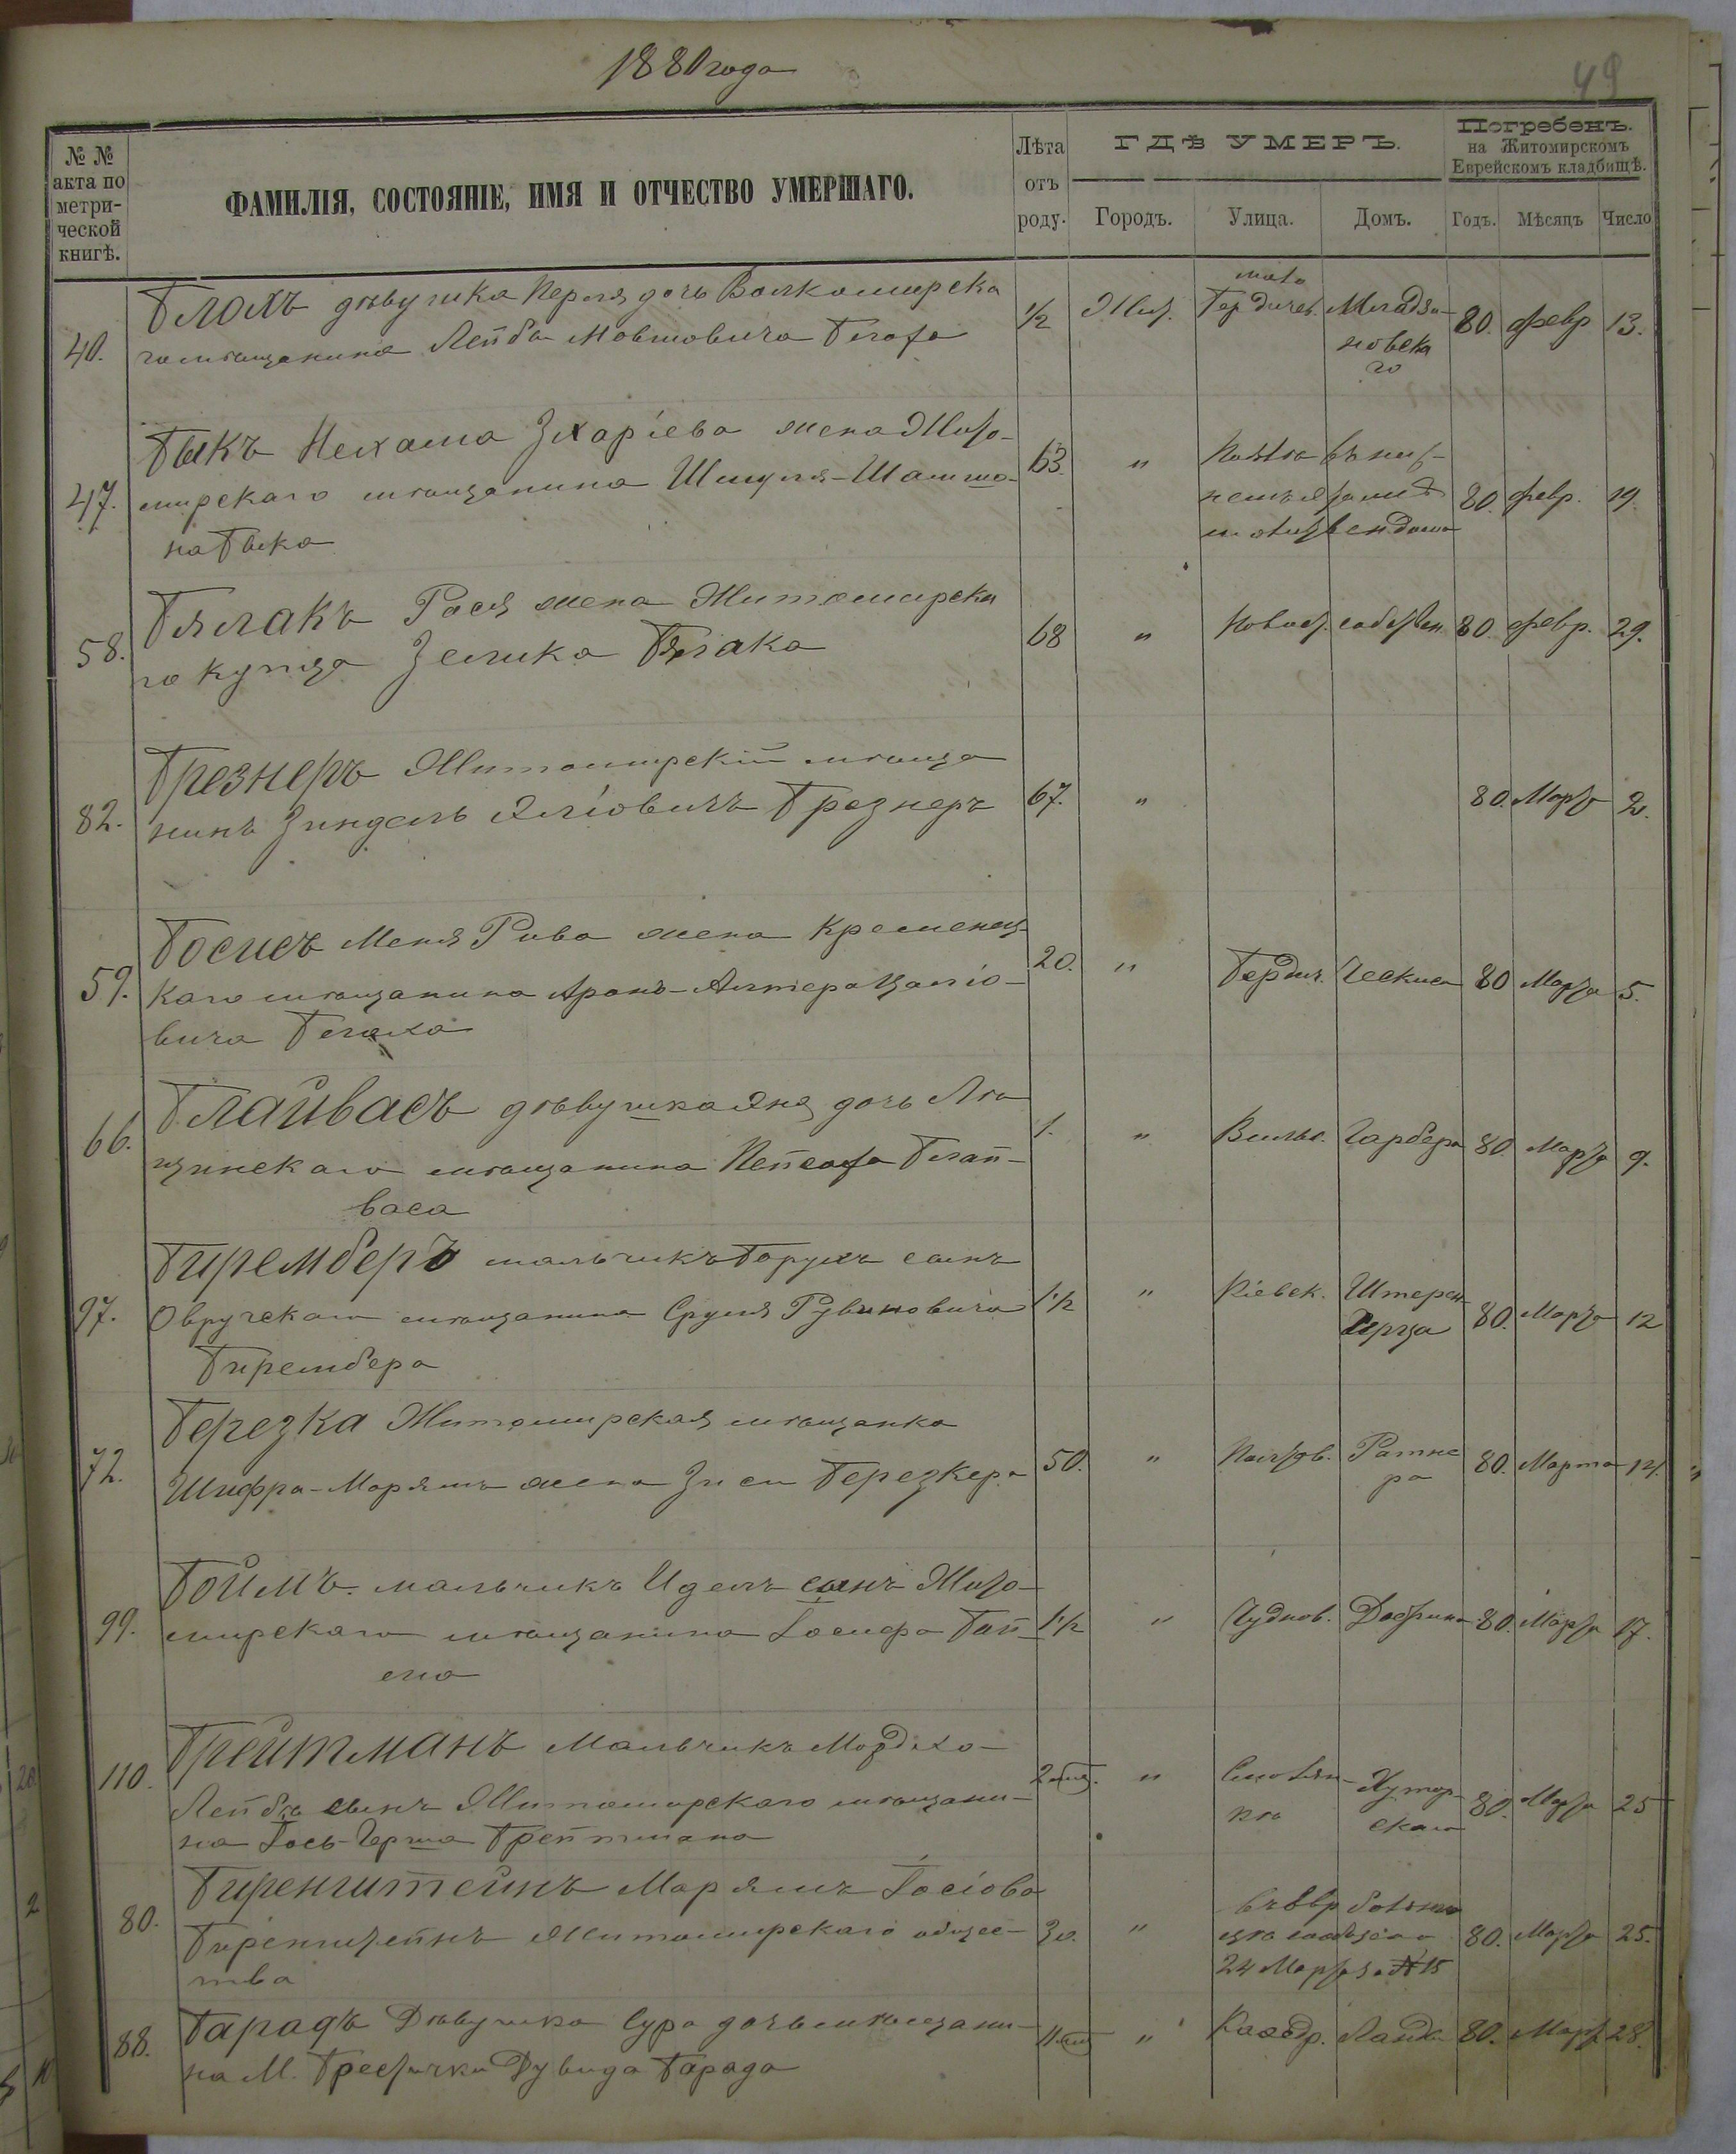 1880 года
49
№ №
акта по
метри-
ческой
книгѣ.
ФАМИЛІЯ, СОСТОЯНІЕ, ИМЯ И ОТЧЕСТВО УМЕРШАГО.
Лѣта
отъ
роду.
ГДѢ УМЕРЪ.
Городъ.
Улица.
Домъ.
Погребенъ.
на Житомирскомъ
Еврейскомъ кладбищѣ.
Годъ.
Мѣсяцъ
Число
40.
Блохъ дѣвушка Перля дочь Волкомирска
го мѣщанина Лейба Мовшовича Блоха
1/2
Жит.
мало
Бердичев.
80.
февр
13.
47.
Быкъ Нехама Зхаріева жена Жито-
мирскаго мѣщанина Шмуля-Шахно-
на Быка
63
"
80.
февр.
19.
58.
Бялакъ Рася жена Житомирска
го купца Зелика Бялака
68
"
80.
февр.
29.
82.
Брезнеръ Житомирскій мѣща
нинъ Зиндель Эліовичъ Брезнеръ
67.
"
80.
Марта
2.
59.
Меня Рива жена Кременец
каго мѣщанина Аронъ-Алтера
вича
20.
"
Бердич.
80
Марта
5.
66.
Блайвасъ дѣвушка дочь
мѣщанина Пейсаха Блай-
васа
1.
"
Вильс.
Гарбера
80.
Марта
9.
97.
Биремберъ мальчикъ Борухъ сынъ
Овручскаго мѣщанина Сруля Рувиновича
Бирембера
1 1/2
"
Кіевск.
Штерен-
герца
80.
Марта
12
72.
Березка Житомирская мѣщанка
Шифра-Марямъ жена Зиси Березкера
50.
"
Ратне
ра
80.
Марта
14.
99.
Боймъ. мальчикъ Идель сынъ Жито-
мирскаго мѣщанина Іосифа Бой-
ма
1 1/2
"
Чуднов.
80.
Марта
17.
110.
Брейтманъ Мальчикъ Мордхо-
Лейбъ сынъ Житомирскаго мѣщани-
на Іось-Герша Брейтмана
2 мѣс.
"
Смолян-
ка
Хутор-
скаго
80.
Марта
25
80.
Биренштейнъ Марямъ Іосіова
Биренштейнъ Житомирскаго общес-
тва
30.
"
въ Евр больни
цѣ сообщеніе
24 Марта за № 15
80.
Марта
25.
88.
Барадъ Дѣвушка Сура дочь мѣщани-
на М. Дувида Барада
"
Каѳедр.
Ланда
80.
Март
28.